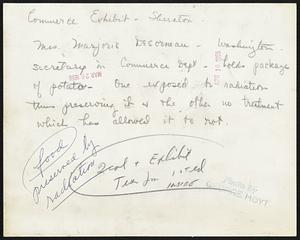 Commerce Exhibit - Sheraton
Miss Marjorie DeGorman - Washington
secretary in Commerce Dept - holds packages
MAR 24 1956
of potatoes - One exposed to radiation
thus preserving it & the other no treatment
which has allowed it to rot.
food
preserved by
radiation
2 col + Exhibit
Photo By
HOYT